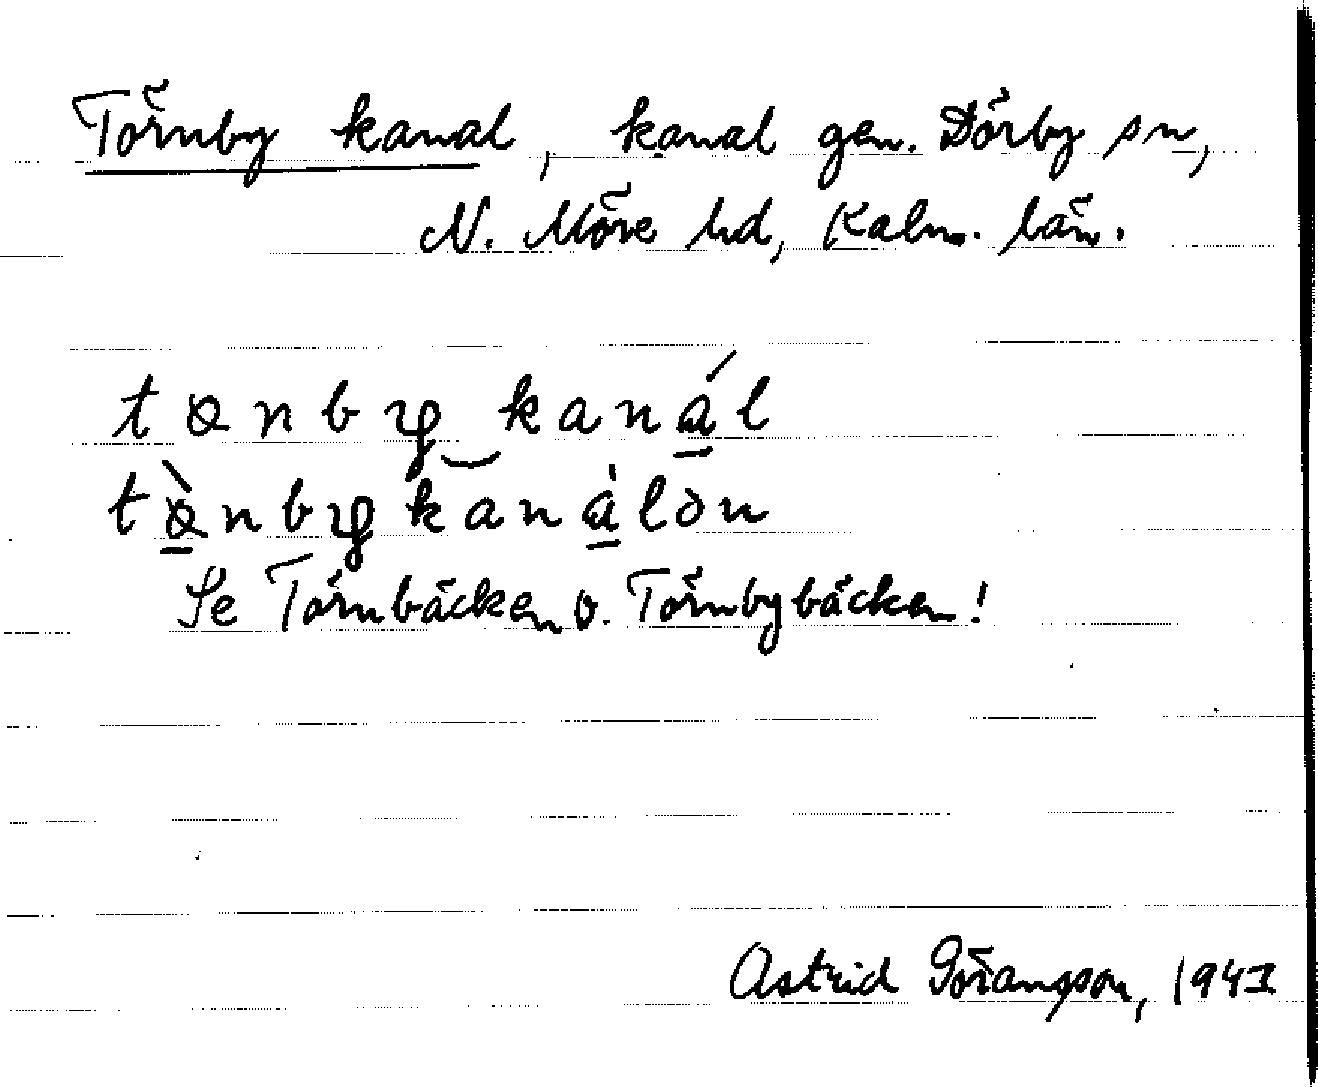 Törnby kanal, kanal gen. Dörby sn,
N. Möre hd, Kalm. län.
tɵnby‿kanál
tɵ̀nbykanàlən
Se Törnbäcken o. Törnbybäcken!
Astrid Göransson, 1943